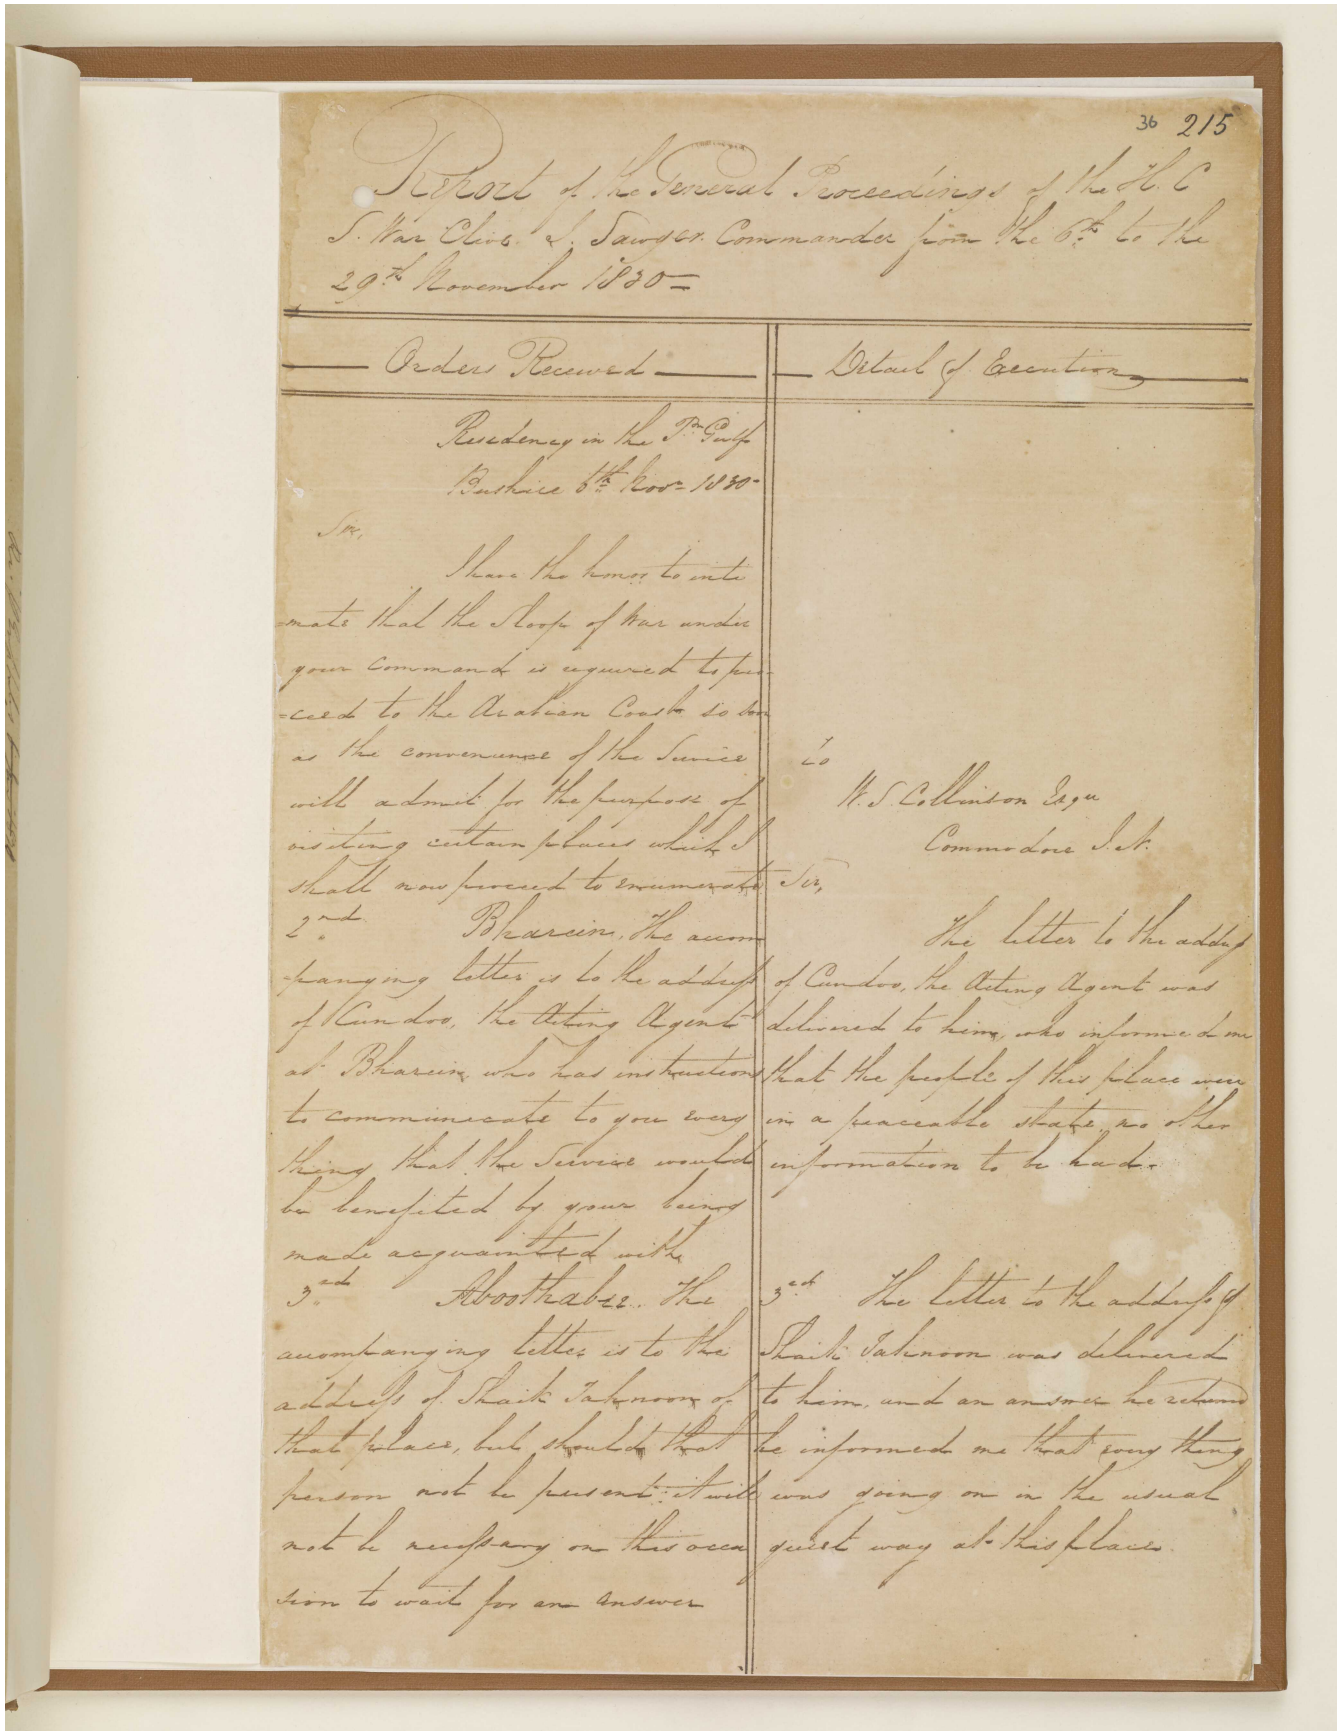 36 215
Report of the General Proceedings of the H. C
S. War Clive. J. Sawyer. Commander from the 6th to the
29th November 1830 =
Orders Received
Residency in the Pn Gulf
Bushire 6th Novr 1830-
Sir,
I have the honor to inti
=mate that the Sloop of War under
your command is required to pro-
=ceed to the Arabian Coast so soon
as the convenience of the Service
will admit for the purpose of
visiting certain places which I
shall now proceed to enumerate
2nd. Bharein. The accom
panying letter is to the address
of Cundoo, the Acting Agent
at Bharein who has instructions
to communicate to you every
thing that the Service would
be benefited by your being
made acquainted with
3rd Aboothabee. The
accompanying letter is to the
address of Shaik Tahnoon of
that place, but should that
person not be present it will
not be necessary on this occa
sion to wait for an answer
Detail of Execution
To
W. S. Collinson Esqre
Commodore I. N.
Sir,
The letter to the address
of Cundoo, the Acting Agent was
delivered to him, who informed me
that the people of this place were
in a peaceable state, no other
information to be had.
3rd The letter to the address of
Shaik Tahnoon was delivered
to him, and an answer he returned
he informed me that every thing
was going on in the usual
quiet way at this place.